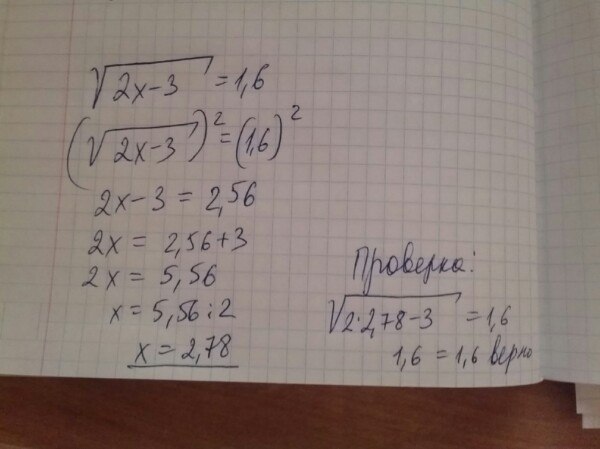 √2x-3 = 1,6
(√2x-3)² = (1,6)²
2x-3 = 2,56
2x = 2,56+3
2x = 5,56
x = 5,56:2
x = 2,78
Проверка:
√2·2,78-3 = 1,6
1,6 = 1,6 верно